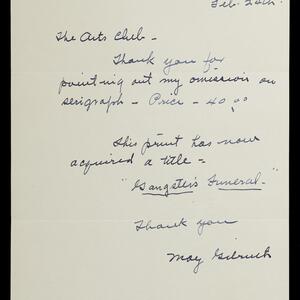 Feb. 24th.
The Arts Club -
Thank you for
pointing out my omission on
serigraph - Price - 40.00
This print has now
acquired a title -
"Gangster's Funeral."
Thank you
May Gilruth